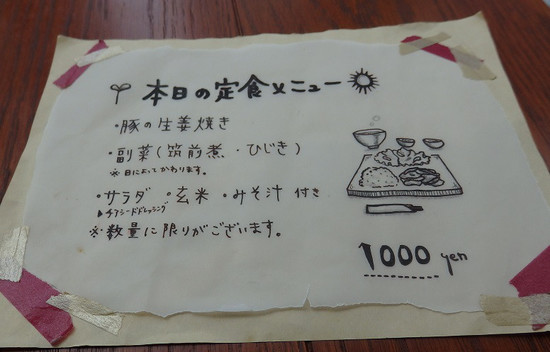 本日の定食メニュー
・豚の生姜焼き
・副菜(筑前煮・ひじき)
※日によってかわります。
・サラダ ・玄米 ・みそ汁 付き
▶チアシードドレッシング
※数量に限りがございます。
1000 yen